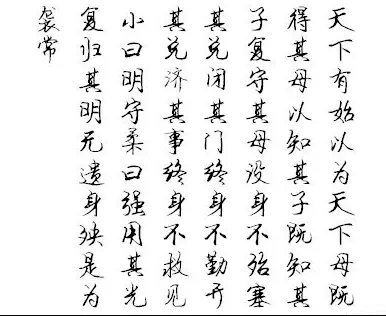 天下有始以为天下母既
得其母以知其子既知其
子复守其母没身不殆塞
其兑闭其门终身不勤开
其兑济其事终身不救见
小曰明守柔曰强用其光
复归其明无遗身殃是为
袭常